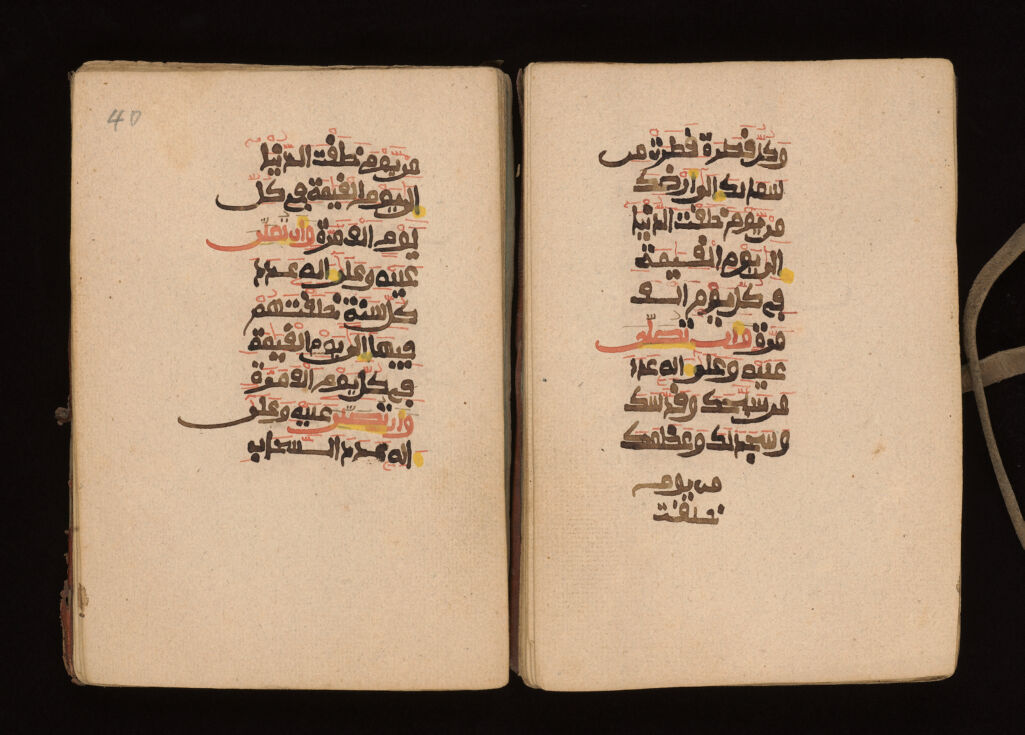 وكل قطرة قطرت من
سمائك الى ارضك
من يوم خلقت الدنيا
الى يوم القيمة
في كل يوم الف
مرة وان تصلي
عليه وعلى اله عدد
من سبحك وقدسك
وسجد لك وعظمك
من يوم
خلقت
40
من يوم خلقت الدنيا
الى يوم القيمة في كل
يوم الف مرة وان تصلي
عليه وعلى اله عدد
كل سنة خلقتهم
فيها الى يوم القيمة
في كل يوم الف مرة
وان تصلي عليه وعلى
اله عدد السحاب